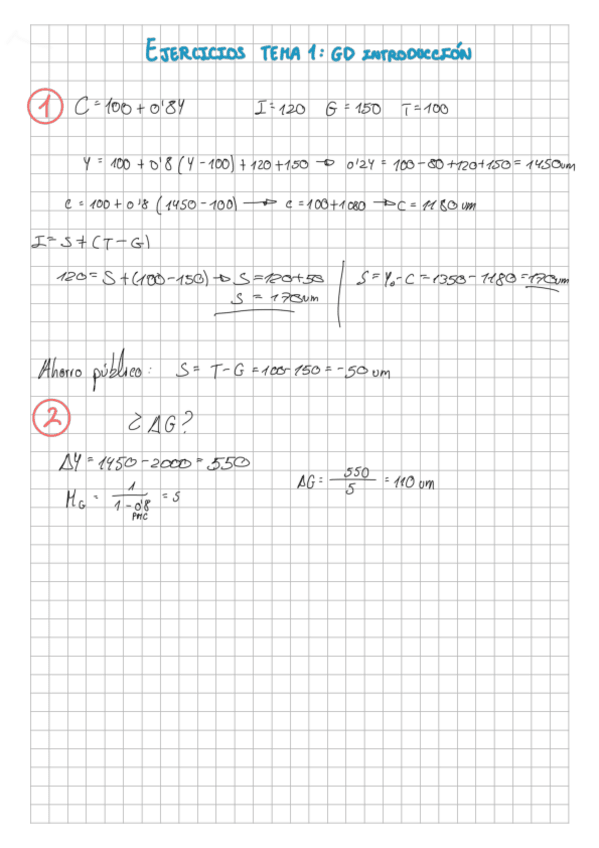 EJERCICIOS TEMA 1: GD INTRODUCCIÓN
1 C = 100 + 0'8Y I = 120 G = 150 T = 100
Y = 100 + 0'8 (Y - 100) + 120 + 150 → 0'2Y = 100 - 80 + 120 + 150 = 1450um
C = 100 + 0'8 (1450 - 100) → C = 100 + 1080 → C = 1180 um
I = S + (T - G)
120 = S + (100 - 150) → S = 120 + 50 | S = Y₀ - C = 1350 - 1180 = 170um
S = 170um
Ahorro público: S = T - G = 100 - 150 = -50 um
2 ¿ΔG?
ΔY = 1450 - 2000 = 550
ΔG = 550 / 5 = 110 um
M_G = 1 / (1 - 0'8) = 5
PMC